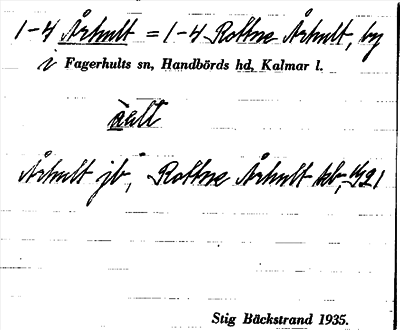 1-4 Århult = 1-4 Rottne Århult, by
i Fagerhults sn, Handbörds hd, Kalmar l.
Århult jb, Rottne Århult kb, 1921
Stig Bäckstrand 1935.